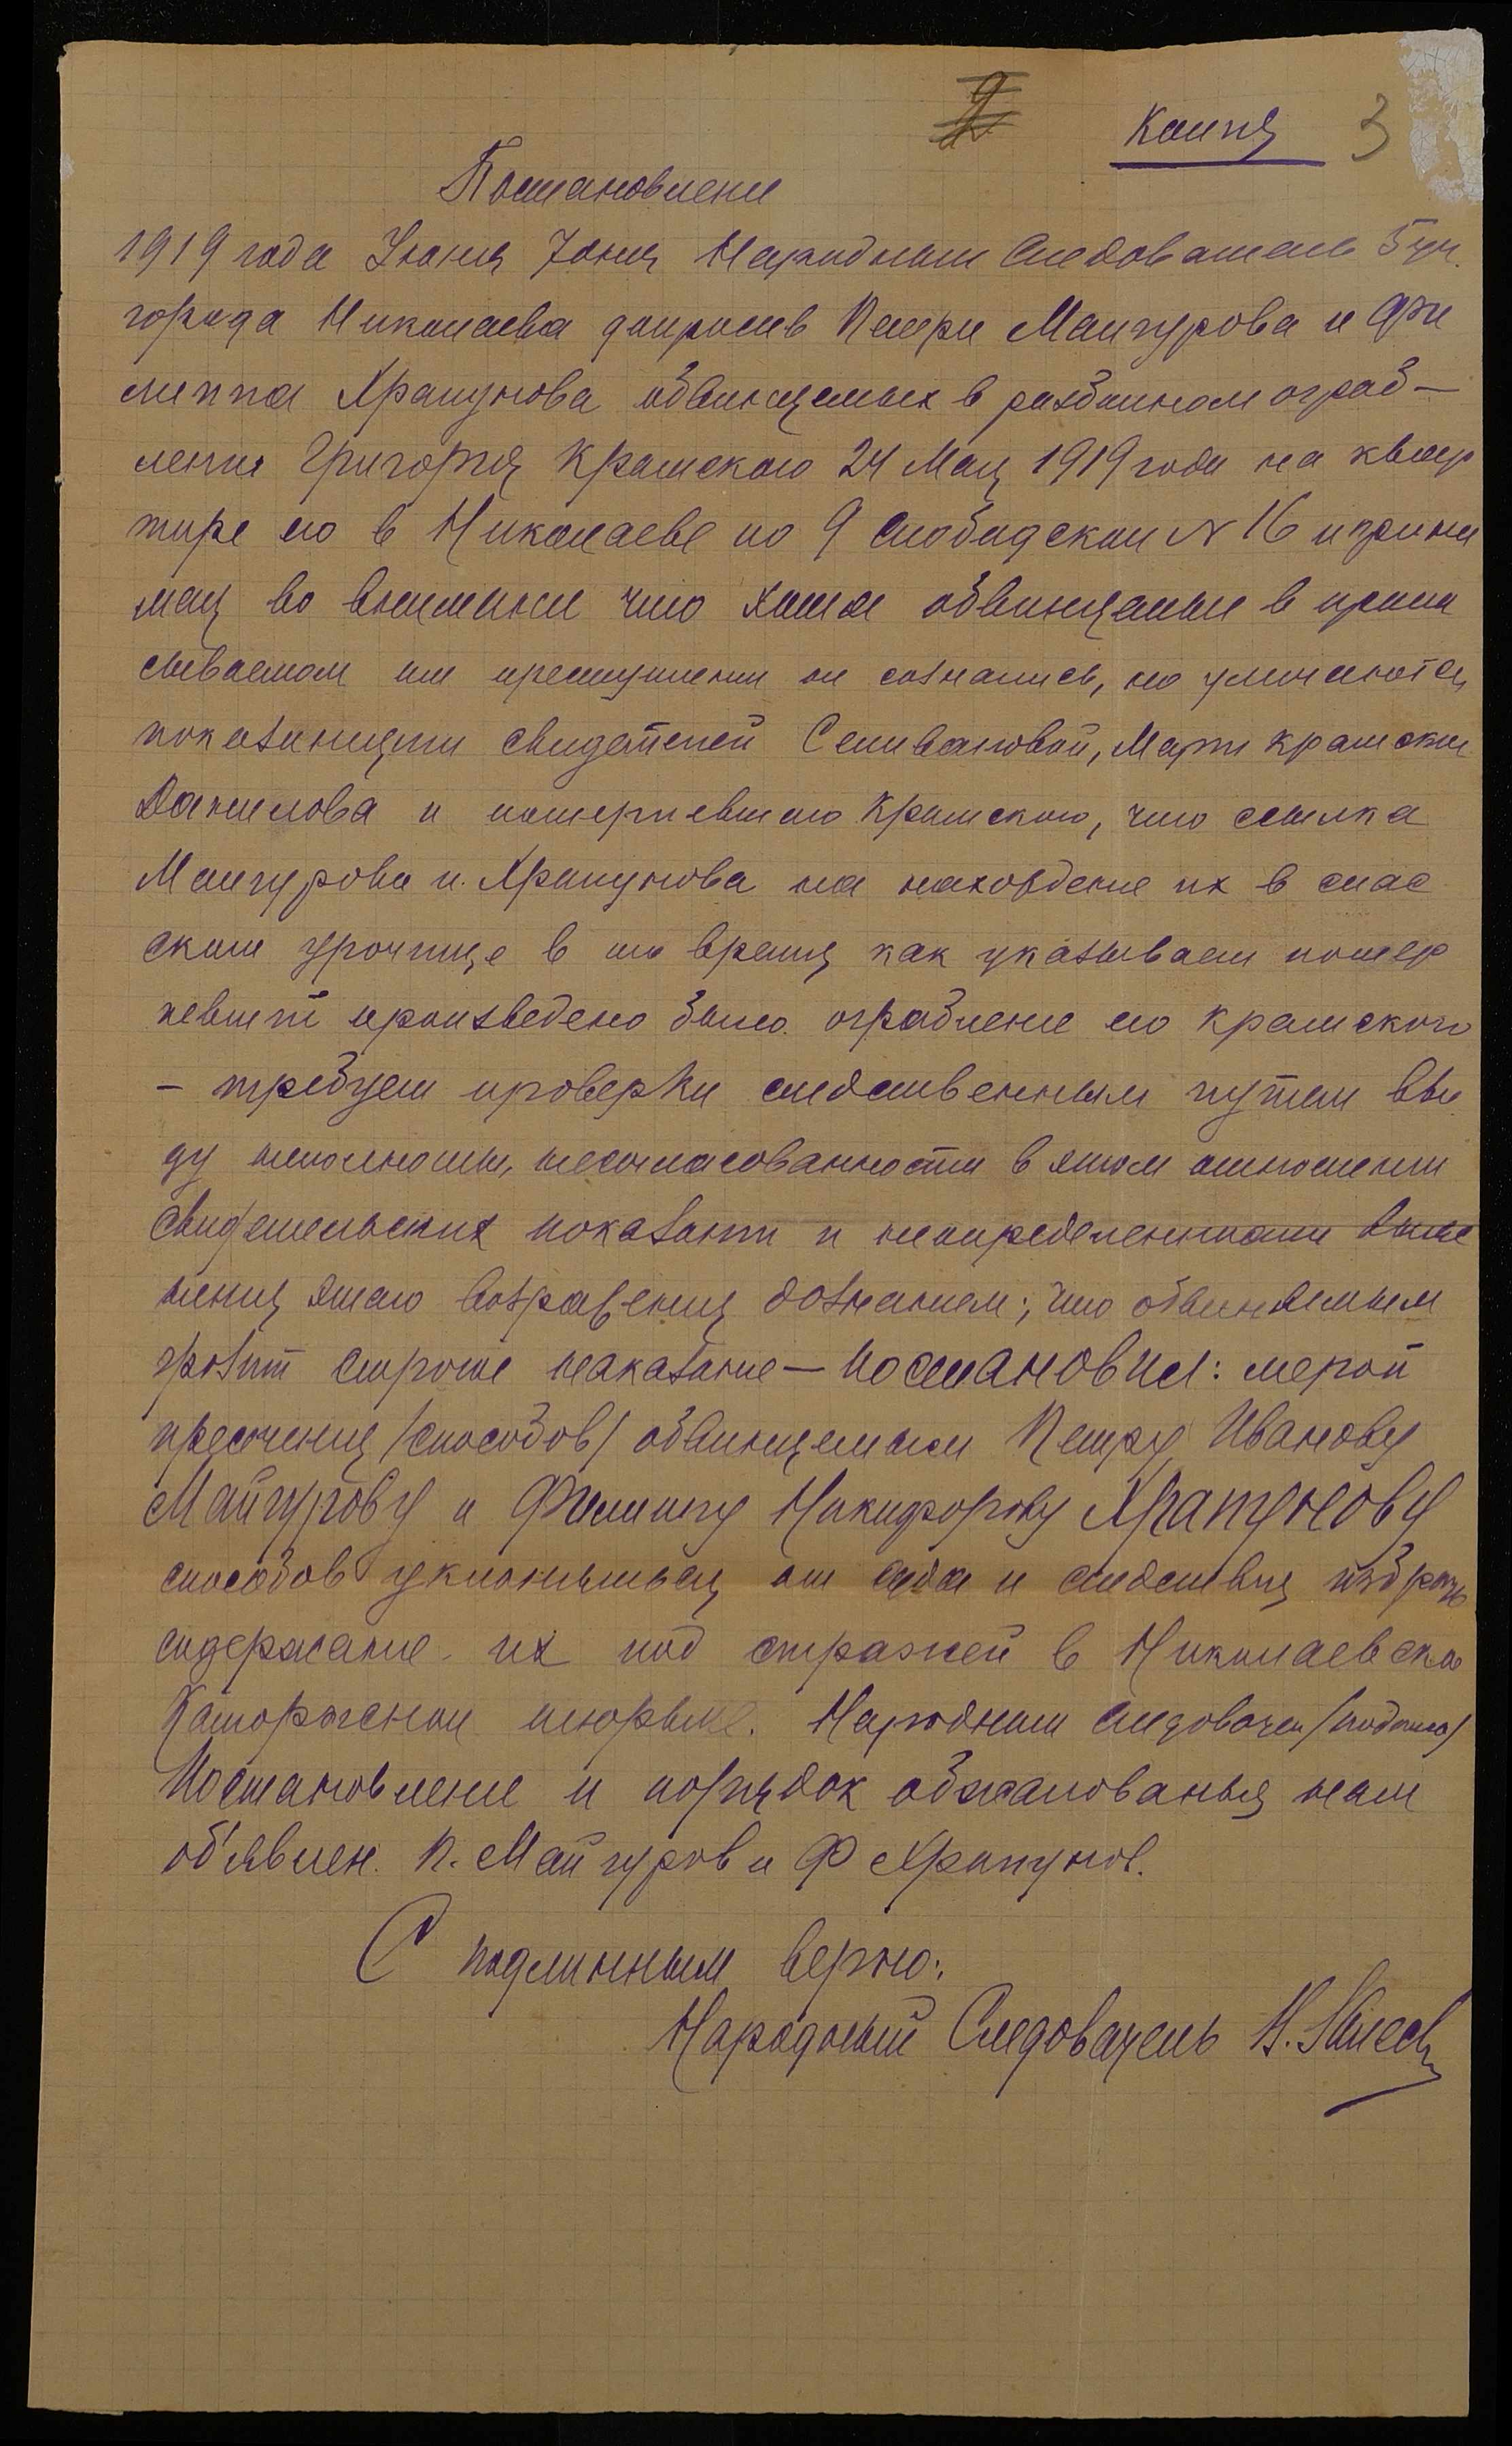 Копия 3
Постановление
1919 года Июня 7 дня Народный Следователь 5 уч.
города Николаева допросив Петра Майгурова и Фи
липпа Храпунова обвиняемых в разбойном ограб—
лении Григория Крамского 24 Мая 1919 года на квар
тире его в Николаеве по 9 Слободской № 16 и прини
мая во внимание что хотя обвиняемые в припи
сываемом им преступлении не сознались, но уличаются
показаниями свидетелей Селивановой, Марии Крамской
Данилова и потерпевшего Крамского, что ссылка
Майгурова и Храпунова на нахождение их в спас
ском урочище в то время как указывает потер
певший произведено было ограбление его Крамского
— требует проверки следственным путем вви
ду неполноты, несогласованности в этом отношении
свидетельских показаний и неопределенности
этого возражения дознанием; что обвиняемым
грозит строгое наказание — постановил: мерой
пресечения /способов/ обвиняемым Петру Иванову
Майгурову и Филиппу Никифорову Храпунову
способов уклониться от суда и следствия избрать
содержание их под стражей в Николаевской
Каторжной тюрьме. Народный Следователь /подпись/
Постановление и порядок обжалованья нам
об'явлен. П. Майгуров и Ф Храпунов.
С подлинным верно:
Народный Следователь Н.